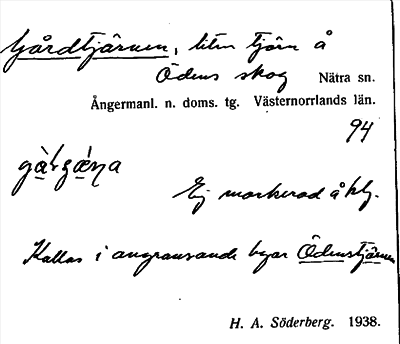 Gårdtjärnen, liten tjärn å
Ödens skog Nätra sn.
Ångermanl. n. doms. tg. Västernorrlands län.
94
Ej markerad å ktg.
Kallas i angränsande byar Ödenstjärnen
H. A. Söderberg. 1938.